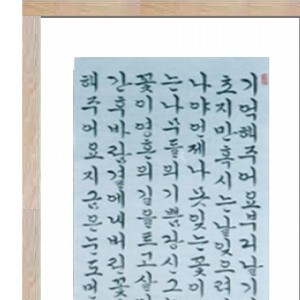 기억해주어요부디날기
초지만혹시는날잊으려
나야언제나못잊는꽃이
는나무들의기쁨당신그
꽃이영혼의길을트고살
간후바람결에내버린꽃
해주어요지금은눈도먼